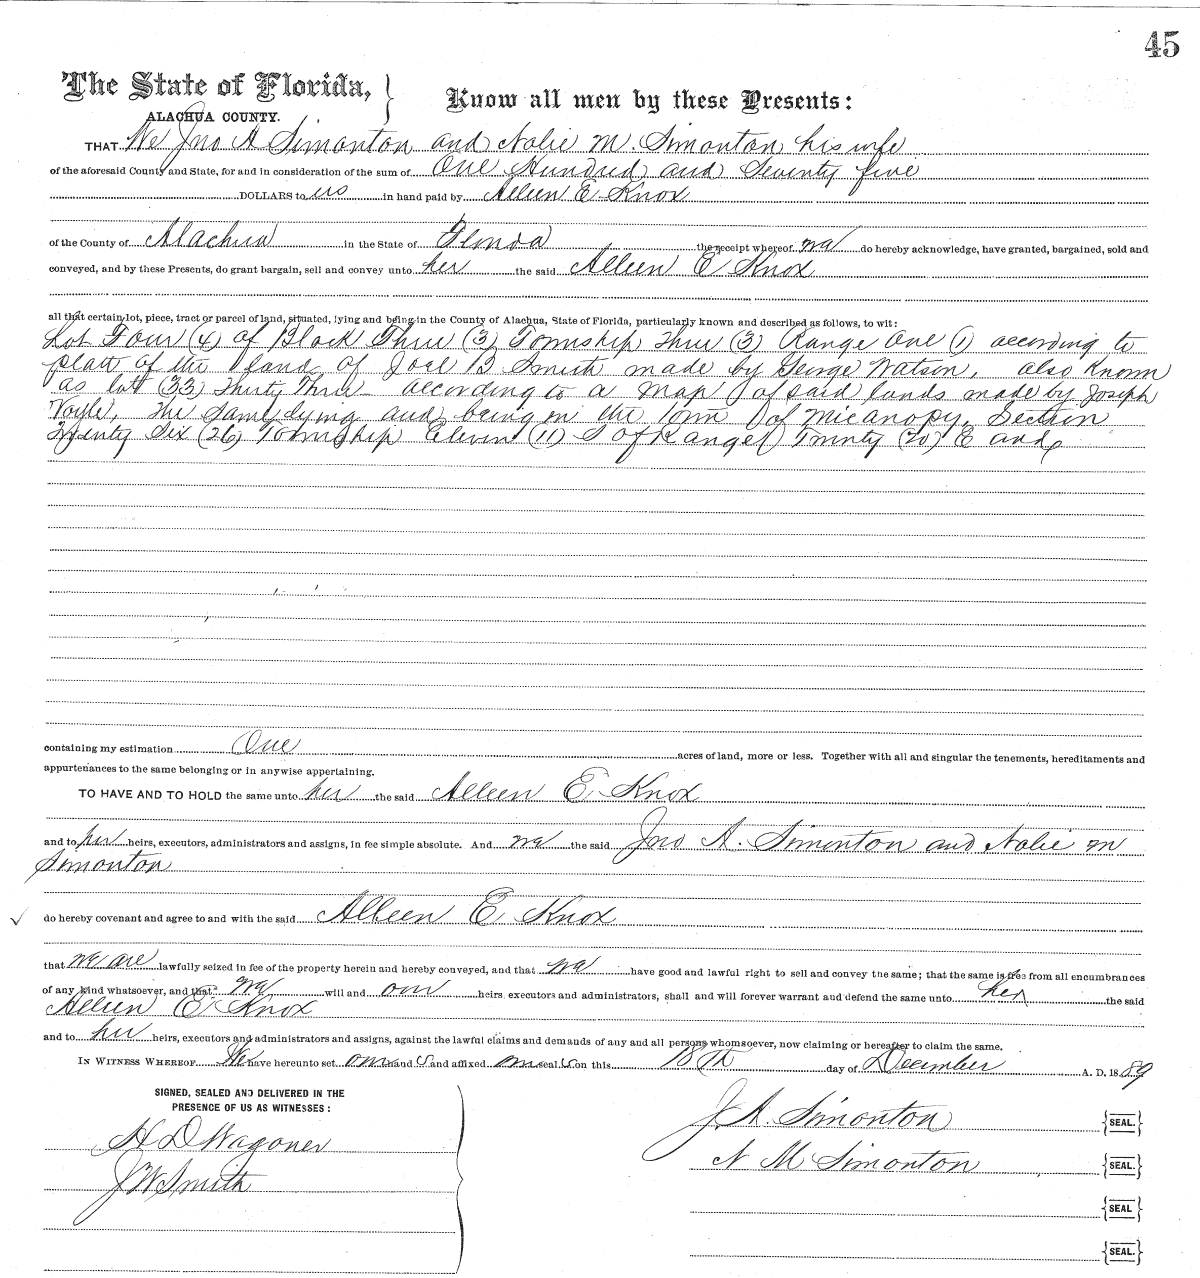 45
The State of Florida, } Know all men by these Presents:
ALACHUA COUNTY.
THAT We Jno A Simonton and Nolie M. Simonton his wife
of the aforesaid County and State, for and in consideration of the sum of One Hundred and Seventy five
DOLLARS to us in hand paid by Alleen E Knox
of the County of Alachua in the State of Florida the receipt whereof we do hereby acknowledge, have granted, bargained, sold and
conveyed, and by these Presents, do grant bargain, sell and convey unto her the said Alleen E Knox
all that certain lot, piece, tract or parcel of land, situated, lying and being in the County of Alachua, State of Florida, particularly known and described as follows, to wit:
Lot Four (4) of Block Three (3) Township Three (3) Range One (1) according to
platt of the land of Joel B Smith made by George Watson, also Known
as lot (33) Thirty Three according to a map of said lands made by Joseph
Voyle, the same lying and being in the Town of Micanopy, Section
Twenty Six (26) Township Eleven (11) S of Range Twenty (20) E and
containing my estimation One acres of land, more or less. Together with all and singular the tenements, hereditaments and
appurtenances to the same belonging or in anywise appertaining.
TO HAVE AND TO HOLD the same unto her the said Alleen E Knox
and to her heirs, executors, administrators and assigns, in fee simple absolute. And we the said Jno A. Simonton and Nolie M
Simonton
do hereby covenant and agree to and with the said Alleen E. Knox
that we are lawfully seized in fee of the property herein and hereby conveyed, and that we have good and lawful right to sell and convey the same; that the same is free from all encumbrances
of any kind whatsoever, and that we will and our heirs, executors and administrators, shall and will forever warrant and defend the same unto her the said
Alleen E Knox
and to her heirs, executors and administrators and assigns, against the lawful claims and demands of any and all persons whomsoever, now claiming or hereafter to claim the same.
IN WITNESS WHEREOF We have hereunto set our hands and affixed our seals on this 18th day of December A. D. 1889
SIGNED, SEALED AND DELIVERED IN THE
PRESENCE OF US AS WITNESSES:
H D Wagoner
J W Smith
J. A. Simonton {SEAL.}
N M Simonton {SEAL.}
{SEAL}
{SEAL.}